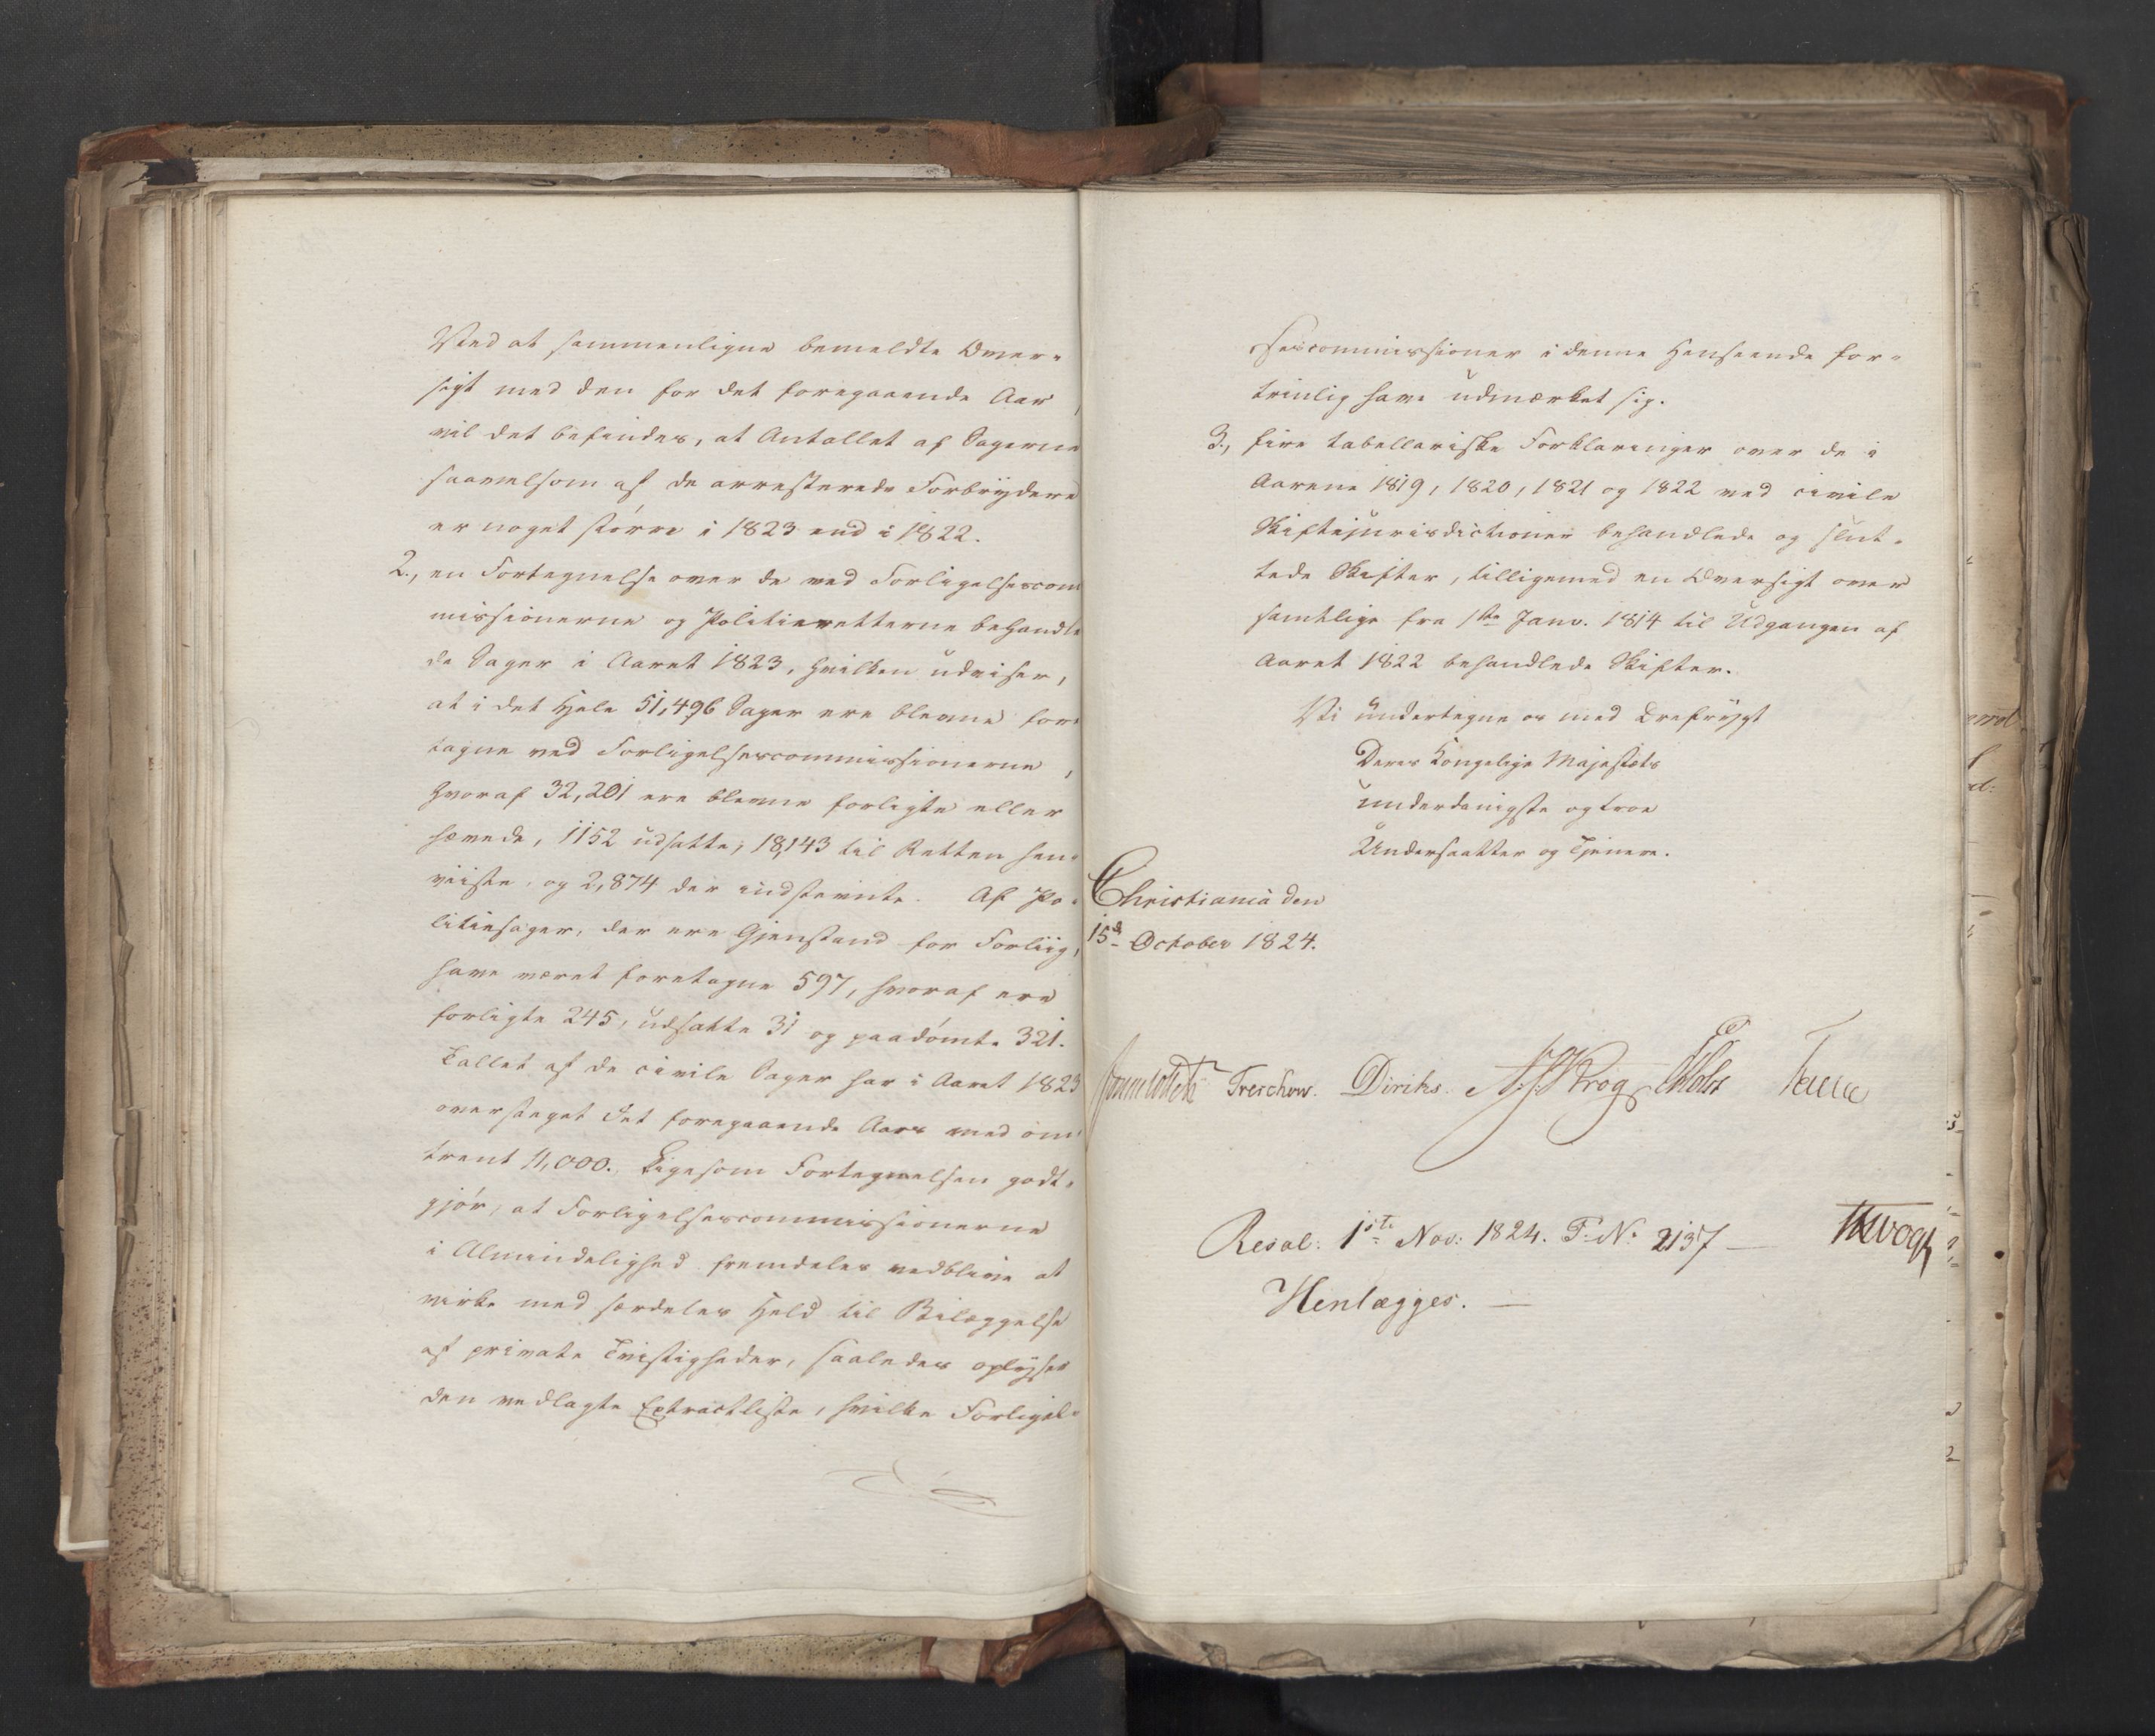 Ved at sammenligne bemeldte Over-
sigt med den for det foregaaende Aar,
vil det befindes, at Antallet af Sagerne
saavelsom af de arresterede Forbrydere
er noget större i 1823 end i 1822.
2., en Fortegnelse over de ved Forligelsescom
missionerne og Politieretterne behandle
de Sager i Aaret 1823, hvilken udviser,
at i det Hele 51,496 Sager ere blevne fore
tagne ved Forligelsescommissionerne,
hvoraf 32,201 ere blevne forligte eller
hævede, 1152 udsatte, 18,143 til Retten hen-
viiste, og 2,874 der indstevnte. Af Po-
litiesager, der ere Gjenstand for Forliig,
have været foretagne 597, hvoraf ere
forligte 245, udsatte 31 og paadömte 321.
Tallet af de civile Sager har i Aaret 1823
oversteget det foregaaende Aars med om
trent 11,000. Ligesom Fortegnelsen godt-
gjör, at Forligelsescommissionerne
i Almindelighed fremdeles vedblive at
virke med særdeles Held til Bilæggelse
af private Tvistigheder, saaledes oplyser
den vedlagte Extractliste, hvilke Forligel-
sescommissioner i denne Henseende for-
trinlig have udmærket sig.
3., fire tabellariske Forklaringer over de i
Aarene 1819, 1820, 1821 og 1822 ved civile
Skiftejurisdictioner behandlede og slut-
tede Skifter, tilligemed en Oversigt over
samtlige fra 1ste Janv. 1814 til Udgangen af
Aaret 1822 behandlede Skifter.
Vi undertegne os med Ærefrygt
Deres Kongelige Majestæts
underdanigste og troe
Undersaatter og Tjenere.
Christiania den
15d October 1824.
Sommerhielm Treschow. Diriks. J. Krog Holst Fasting
Resol: 1ste Nov: 1824. F. No 2137 —
Henlægges. —